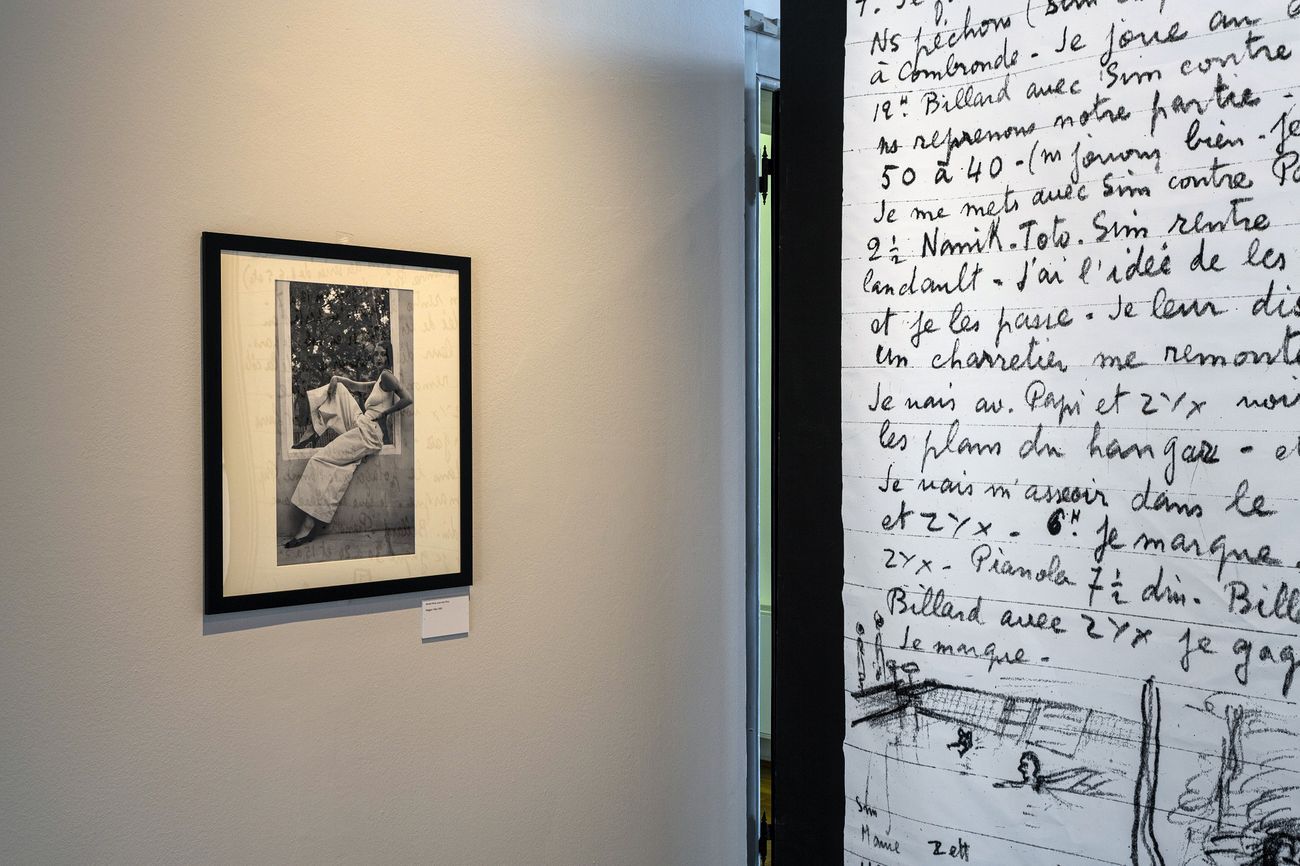 7. Je
Ns pêchons (Sim
à Combronde - Je joue au
12H Billard avec Sim contre
ns reprenons notre partie -
50 à 40 - (ns jouons bien - Je
Je me mets avec Sim contre
2 1/2 Nanik. Toto. Sim rentre
landault - J'ai l'idée de les
et je les passe - Je leur dis
un charretier me remonte
Je vais av. Papi et ZYX voir
les plans du hangar - et
Je vais m'asseoir dans le
et ZYX - 6H Je marque.
ZYX - Pianola 7 1/2 din. Bill
Billard avec ZYX je gag
Je marque -
Sim
Zett